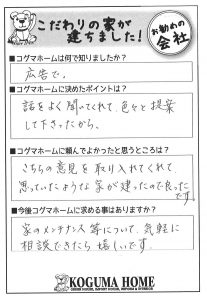 こだわりの家が
建ちました!
お勧めの
会社
■コグマホームは何で知りましたか?
広告で。
■コグマホームに決めたポイントは?
話をよく聞いてくれて、色々と提案
して下さったから。
■コグマホームに頼んでよかったと思うところは?
こちらの意見を取り入れてくれて
思っていたような家が建ったので良かった
です。
■今後コグマホームに求める事はありますか?
家のメンテナンス等について、気軽に
相談できたら嬉しいです。
KOGUMA HOME
ORDER HOUSE, IMPORT HOUSE, REFORM & INTERIOR